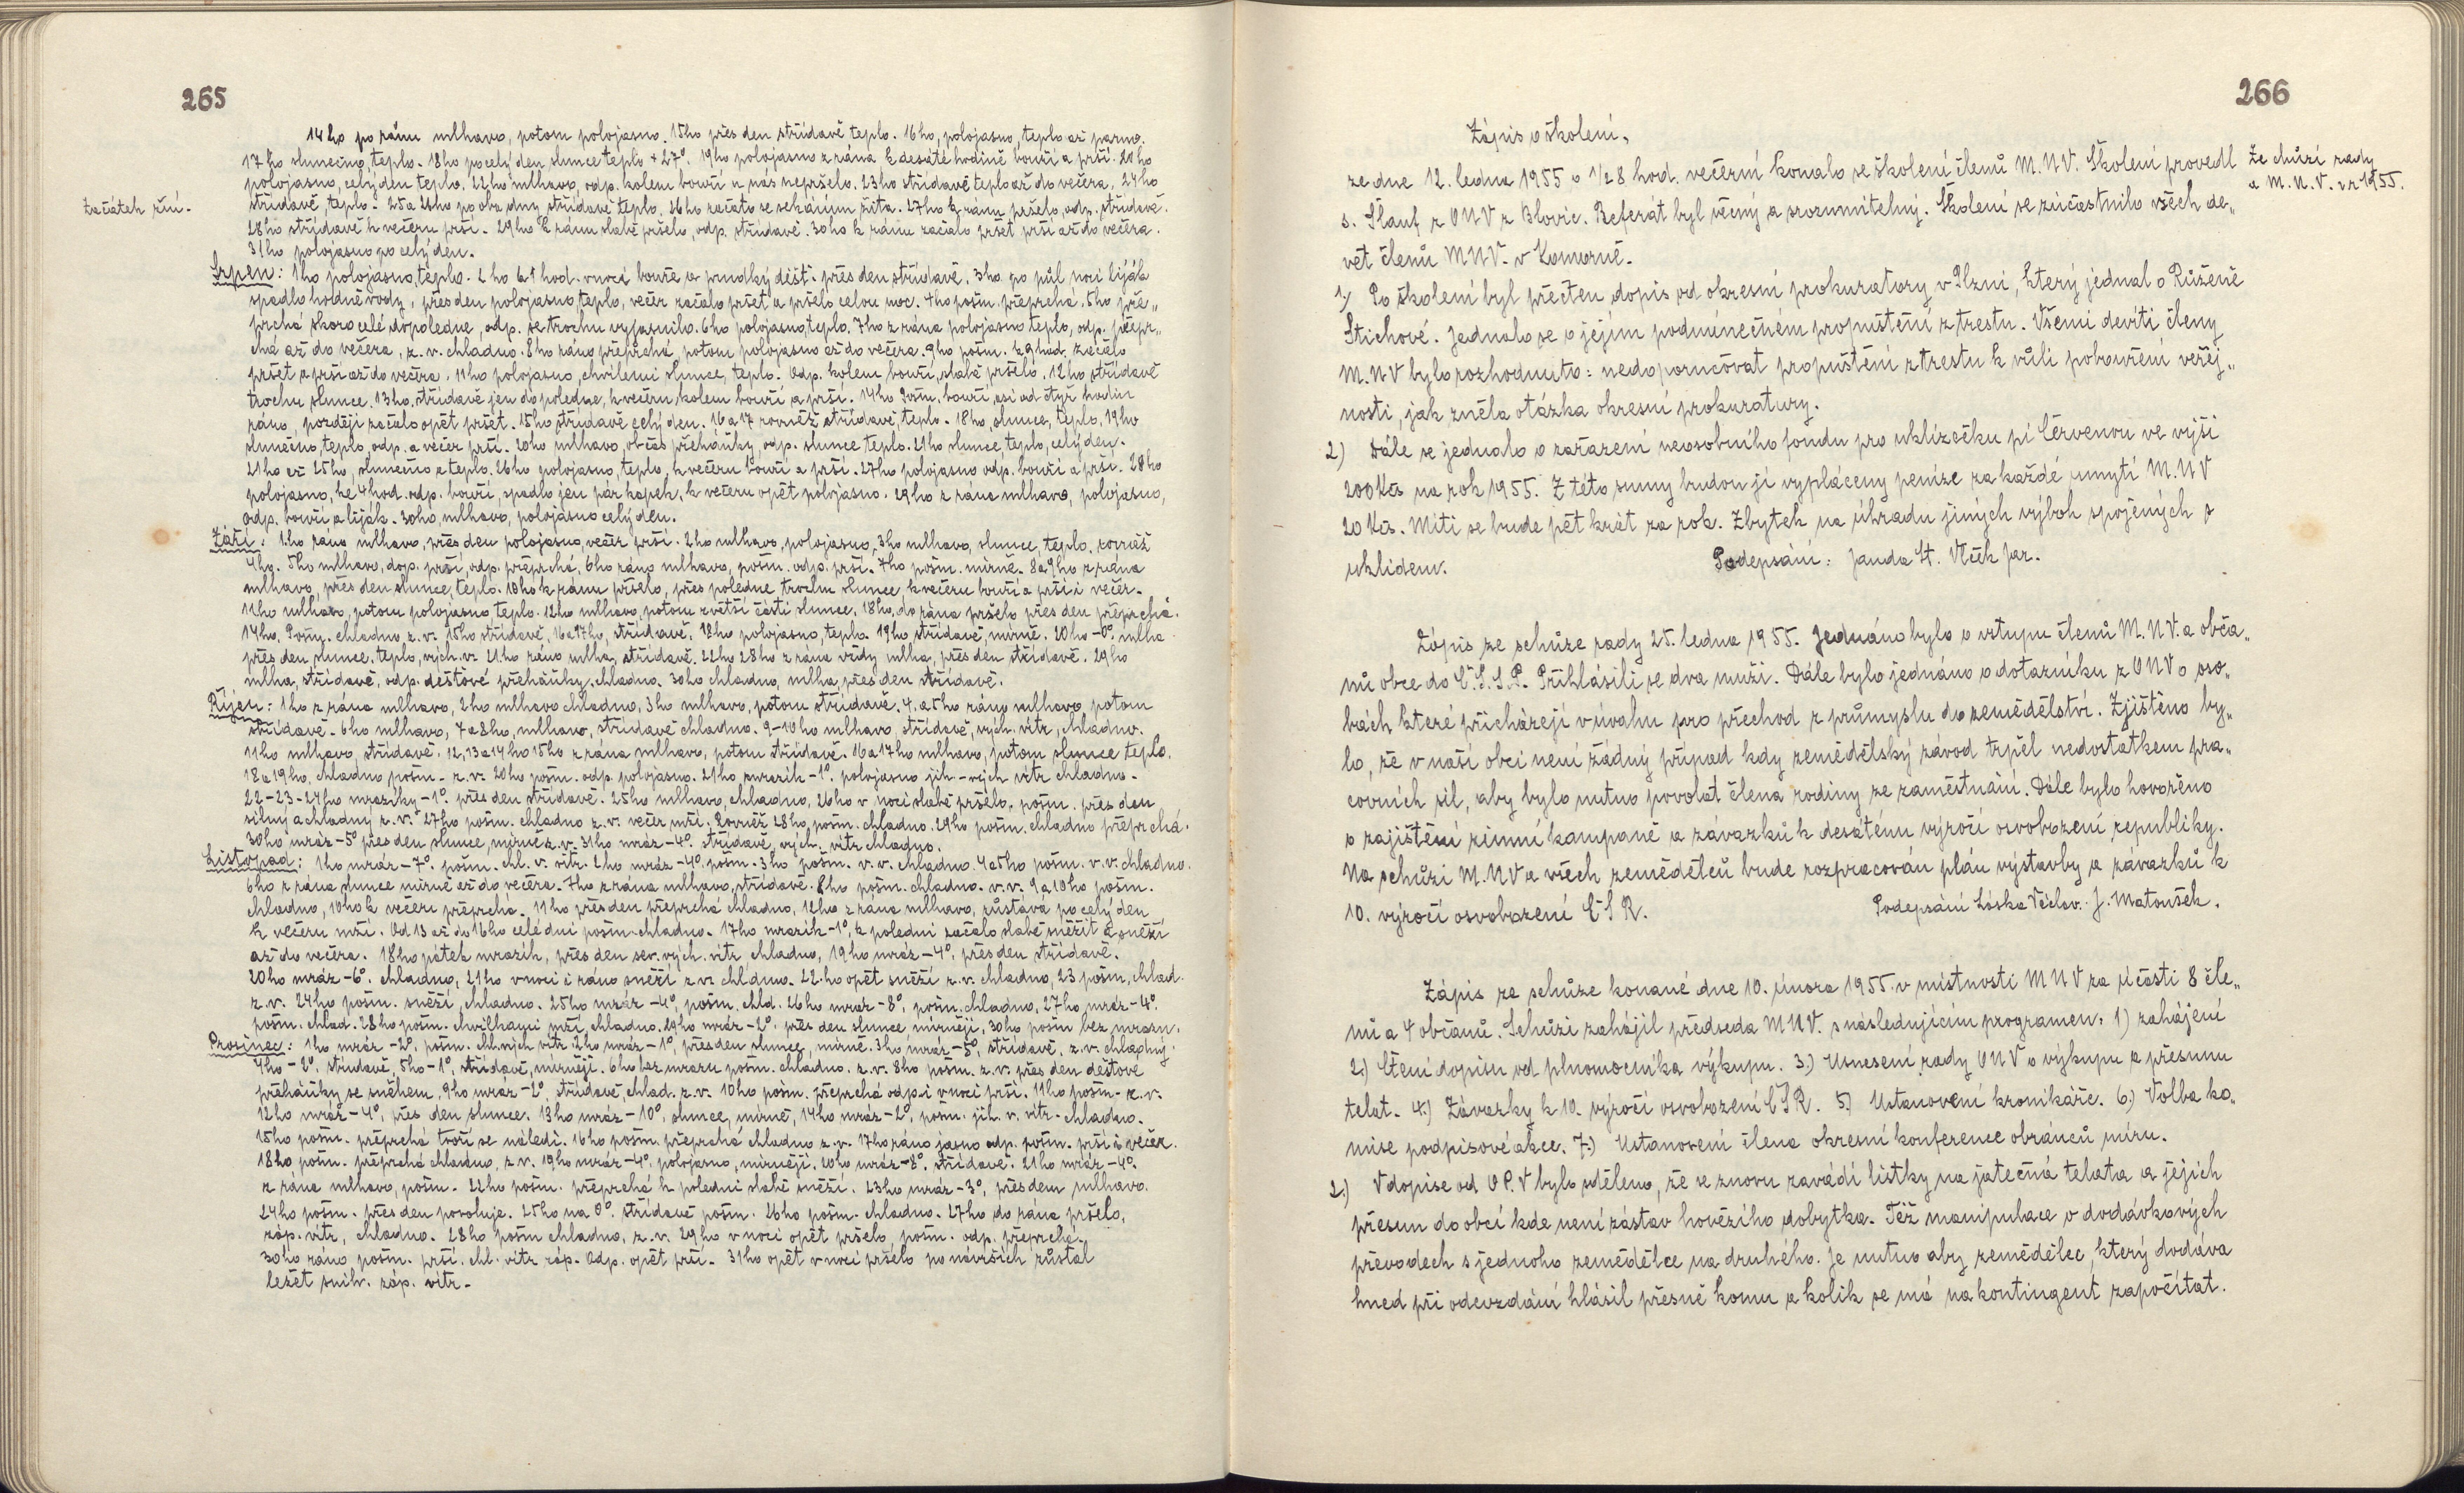 265
14ho po ránu mlhavo, potom polojasno. 15ho přes den střídavě teplo. 16ho, polojasno, teplo až parno.
17ho slunečno, teplo. 18ho po celý den slunce teplo + 27°. 19ho polojasno z rána k desáté hodině bouří a prší. 20ho
polojasno, celý den teplo. 22ho mlhavo, odp. kolem bouří u nás nepršelo. 23ho střídavě teplo až do večera, 24ho
začátek žní.
střídavě, teplo. 25 a 26ho po oba dny střídavě teplo. 26ho začato se sekáním žita. 27ho k ránu pršelo, odp. střídavě.
28ho střídavě k večeru prší. 29ho k ránu slabě pršelo, odp. střídavě. 30ho k ránu začalo pršet prší až do večera.
31ho polojasno po celý den.
Srpen: 1ho polojasno, teplo. 2ho v 1 hod. v noci bouře a prudký déšť. přes den střídavě. 3ho po půl noci liják
spadlo hodně vody, přes den polojasno, teplo, večer začalo pršet a pršelo celou noc. 4ho pošm. přeprchá. 5ho pře„
prchá skoro celé dopoledne, odp. se trochu vyjasnilo. 6ho polojasno, teplo. 7ho z rána polojasno teplo, odp. přepr„
chá až do večera, z. v. chladno. 8ho ráno přeprchá, potom polojasno až do večera. 9ho pošm. k 9 hod. začalo
pršet a prší až do večera. 11ho polojasno, chvílemi slunce, teplo. Odp. kolem bouří, slabě pršelo. 12ho střídavě
trochu slunce. 13ho. střídavě jen dopoledne, k večeru kolem bouří a prší. 14ho Pošm. bouří, asi od čtyř hodin
ráno, později začalo opět pršet. 15ho střídavě celý den. 16 a 17 rovněž střídavě, teplo. 18ho, slunce, teplo, 19ho
slunečno, teplo, odp. a večer prší. 20ho mlhavo, občas přeháňky, odp. slunce teplo. 21ho slunce, teplo, celý den.
21ho až 25ho, slunečno a teplo. 26ho polojasno, teplo, k večeru bouří a prší. 27ho polojasno odp. bouří a prší. 28ho
polojasno, ke 4 hod. odp. bouří, spadlo jen pár kapek, k večeru opět polojasno. 29ho z rána mlhavo, polojasno,
odp. bouří a liják. 30ho, mlhavo, polojasno celý den.
Září: 1.ho ráno mlhavo, přes den polojasno, večer prší. 2ho mlhavo, polojasno, 3ho mlhavo, slunce, teplo. rovněž
4ho. 5ho mlhavo, dop. prší, odp. přeprchá, 6ho ráno mlhavo, pošm. odp. prší. 7ho pošm. mírně. 8 a 9ho z rána
mlhavo, přes den slunce, teplo. 10ho k ránu pršelo, přes poledne trochu slunce, k večeru bouří a prší i večer.
11ho mlhavo, potom polojasno teplo. 12ho mlhavo, potom z větší části slunce. 13ho, do rána pršelo přes den přeprchá.
14ho. Pošm. chladno, z. v. 15ho střídavě, 16 a 17ho, střídavě. 18ho polojasno, teplo. 19ho střídavě, mírně. 20ho -0°. mlha
přes den, slunce, teplo, vých. v. 21.ho ráno mlha, střídavě. 22ho 28ho z rána vždy mlha, přes den střídavě. 29ho
mlha, střídavě, odp. dešťové přeháňky, chladno. 30ho chladno, mlha, přes den střídavě.
Říjen: 1ho z rána mlhavo, 2ho mlhavo chladno, 3ho mlhavo, potom střídavě. 4. a 5ho ráno mlhavo, potom
střídavě. 6ho mlhavo, 7 a 8ho, mlhavo, střídavě chladno. 9-10ho mlhavo, střídavě, vých. vítr, chladno.
11ho mlhavo, střídavě. 12, 13 a 14ho 15ho z rána mlhavo, potom střídavě. 16 a 17ho mlhavo, potom slunce teplo.
18 a 19ho, chladno pošm. z. v. 20ho pošm. odp. polojasno. 21ho mrazík -1°. polojasno jih.-vých vítr chladno.
22-23-24ho mrazíky -1°. přes den střídavě. 25ho mlhavo, chladno, 26ho v noci slabě pršelo, pošm. přes den
silný a chladný z. v. 27ho pošm. chladno z. v. večer mží. Rovněž 28ho, pošm. chladno. 29ho pošm. chladno přeprchá.
30ho mráz -5° přes den slunce, mírně z. v. 31ho mráz -4°. střídavě, vých. vítr chladno.
Listopad: 1ho mráz -7°. pošm. chl. v. vítr. 2ho mráz -4°. pošm. 3ho pošm. v. v. chladno. 4 a 5ho pošm. v. v. chladno.
6ho z rána slunce mírně až do večera. 7ho z rána mlhavo, střídavě. 8ho pošm. chladno. v. v. 9 a 10ho pošm.
chladno, 10ho k večeru přeprchá. 11ho přes den přeprchá chladno, 12ho z rána mlhavo, zůstává po celý den
k večeru mží. Od 13 až do 16ho celé dni pošm. chladno. 17ho mrazík -1°, k poledni začalo slabě sněžit a sněží
až do večera. 18ho pátek mrazík, přes den sev. vých. vítr chladno, 19ho mráz -4°, přes den střídavě.
20ho mráz -6°. chladno, 21ho v noci i ráno sněží z v. chladno. 22.ho opět sněží z. v. chladno, 23 pošm, chlad.
z. v. 24ho pošm. sněží, chladno. 25ho mráz -4°, pošm. chld. 26ho mráz -8°, pošm. chladno, 27ho mráz -4°.
pošm. chlad. 28ho pošm. chvilkami mží, chladno. 29ho mráz -2°. přes den slunce mírněji, 30ho pošm bez mrazu.
Prosinec: 1ho mráz -2°, pošm. chl. vých vítr 2ho mráz -1°, přes den slunce, mírně. 3ho mráz -5°, střídavě, z. v. chladný.
4ho -2°. střídavě, 5ho -1°, střídavě, mírněji. 6ho bez mrazu pošm. chladno. z. v. 8ho pošm. z. v. přes den dešťové
přeháňky se sněhem, 9ho mráz -2° střídavě, chlad. z. v. 10ho pošm. přeprchá odp. i v noci prší. 11ho pošm. z. v.
12ho mráz -4°, přes den slunce. 13ho mráz -10°, slunce, mírně, 14ho mráz -2°, pošm. jih. v. vítr. chladno.
15ho pošm. přeprchá tvoří se náledí. 16ho pošm. přeprchá chladno z. v. 17ho ráno jasno odp. pošm. prší i večer.
18ho pošm. přeprchá chladno, z v. 19ho mráz -4°. polojasno, mírněji. 20ho mráz -8°. střídavě. 21ho mráz -4°.
z rána mlhavo, pošm. 22ho pošm. přeprchá k poledni slabě sněží. 23ho mráz -3°, přes den mlhavo.
24ho pošm. přes den povoluje. 25ho na 0°. střídavě pošm. 26ho pošm. chladno. 27ho do rána pršelo,
záp. vítr, chladno. 28ho pošm chladno, z. v. 29ho v noci opět pršelo, pošm. odp. přeprchá.
30ho ráno pošm. prší. chl. vítr záp. Odp. opět prší. 31ho opět v noci pršelo po návrších zůstal
ležet sníh. záp. vítr.
266
Zápis o školení.
ze dne 12. ledna 1955 o 1/2 8 hod. večerní konalo se školení členů M. N V. Školení provedl
Ze chůzí rady
a M. N. V. v r 1955.
s. Šlauf z ONV z Blovic. Referát byl věcný a srozumitelný. Školení se zúčastnilo všech de„
vět členů MNV. v Komorně.
1.) Po školení byl přečten dopis od okresní prokuratory v Plzni, který jednal o Růženě
Stichové. Jednalo se o jejím podmínečném propuštění z trestu. Všemi devíti členy
M. N V bylo rozhodnuto: nedoporučovat propuštění z trestu k vůli pohoršení veřej„
nosti, jak zněla otázka okresní prokuratury.
2) Dále se jednalo o zařazení neosobního fondu pro uklízečku pí Červenou ve výši
200 Kčs na rok 1955. Z této sumy budou jí vypláceny peníze za každé umytí M. N V
20 Kčs. Mítí se bude pět krát za rok. Zbytek na úhradu jiných výloh spojených s
úklidem. Podepsáni: Janda St. Vlček Jar.
Zápis ze schůze rady 25. ledna 1955. Jednáno bylo o vstupu členů M. N V. a obča„
nů obce do Č. S. S. P. Přihlásili se dva muži. Dále bylo jednáno o dotazníku z ONV o oso„
bách které přicházejí v úvahu pro přechod z průmyslu do zemědělství. Zjištěno by„
lo, že v naší obci není žádný případ kdy zemědělský závod trpěl nedostatkem pra„
covních sil, aby bylo nutno povolat člena rodiny ze zaměstnání. Dále bylo hovořeno
o zajištění zimní kampaně a závazků k desátému výročí osvobození republiky.
Na schůzi M. NV a všech zemědělců bude rozpracován plán výstavby a závazků k
10. výročí osvobození ČSR. Podepsáni Lóska Václav. J. Matoušek.
Zápis ze schůze konané dne 10. února 1955. v místnosti MNV za účasti 8 čle„
nů a 4 občanů. Schůzi zahájil předseda MNV. s následujícím programem: 1) zahájení
2.) Čtení dopisu od plnomocníka výkupu. 3.) Usnesení rady ONV o výkupu a přesunu
telat. 4.) Závazky k 10. výročí osvobození ČSR. 5.) Ustanovení kronikáře. 6.) Volba ko„
mise podpisové akce. 7.) Ustanovení člena okresní konference obránců míru.
2.) V dopise od O P. V bylo sděleno, že se znovu zavádí lístky na jatečná telata a jejich
přesun do obcí kde není zástav hovězího dobytka. Též manipulace o dodávkových
převodech s jednoho zemědělce na druhého. Je nutno aby zemědělec, který dodává
hned při odevzdání hlásil přesně komu a kolik se má na kontingent započítat.